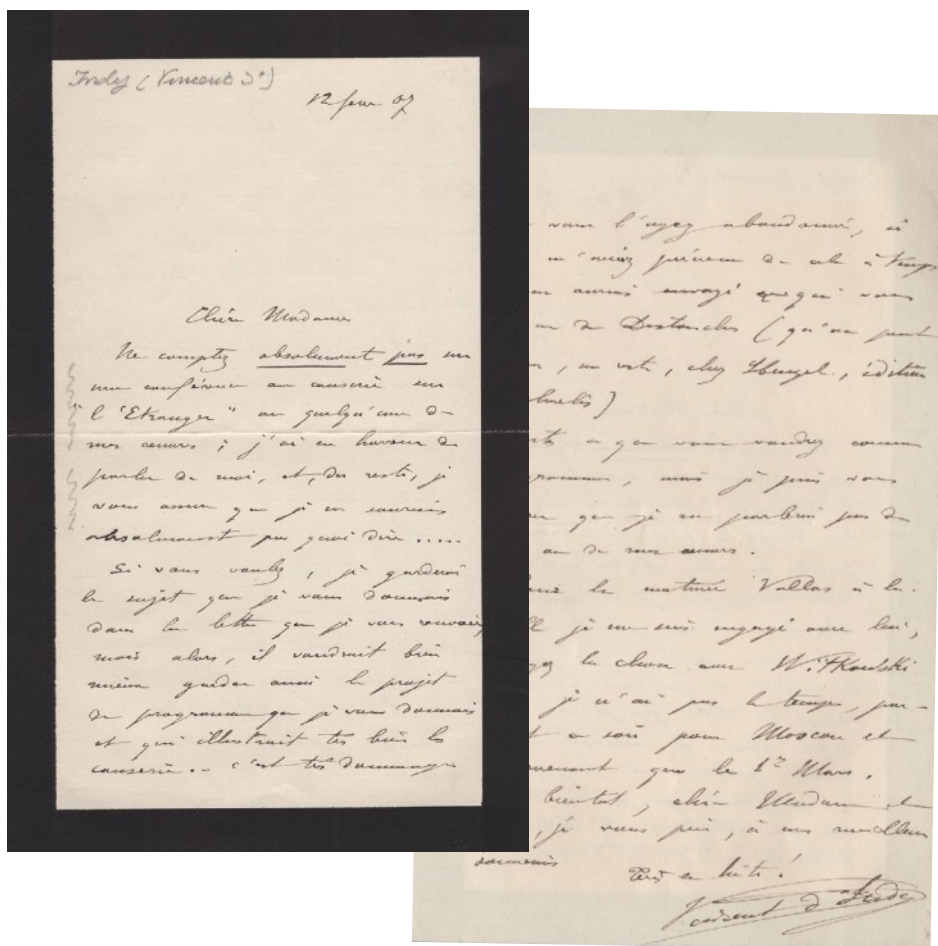 Indy (Vincent d')
12 fevr 07
Chère Madame
Ne comptez absolument pas sur
une conférence ou causerie sur
l'"Etranger" ou quelqu'une de
mes œuvres ; j'ai en horreur de
parler de moi, et, du reste, je
vous assure que je ne saurais
absolument pas quoi dire .....
Si vous voulez, je garderai
le sujet que je vous donnais
dans la lettre que je vous envoyai,
mais alors, il vaudrait bien
mieux garder aussi le projet
de programme que je vous donnais
et qui illustrait très bien la
causerie.. c'est très dommage
vous l'ayez abandonné, si
m'aviez prévenu de cela à temps
aurais envoyé
de Destouches (qu'on peut
, en vente, chez Heugel, édition
)
ce que vous voudrez comme
, mais je puis vous
que je ne parlerai pas de
ou de mes œuvres.
la matinée Vallas à la-
je me suis engagé avec lui,
la chose avec Witkowski
je n'ai pas le temps, par-
ce soir pour Moscou et
que le 1er Mars.
bientôt, chère Madame et
, je vous prie, à mes meilleurs
souvenirs
en hâte !
Vincent d'Indy